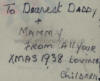 To Dearest Daddy,
+
Mummy
From All your
XMAS 1938. Loving
Children